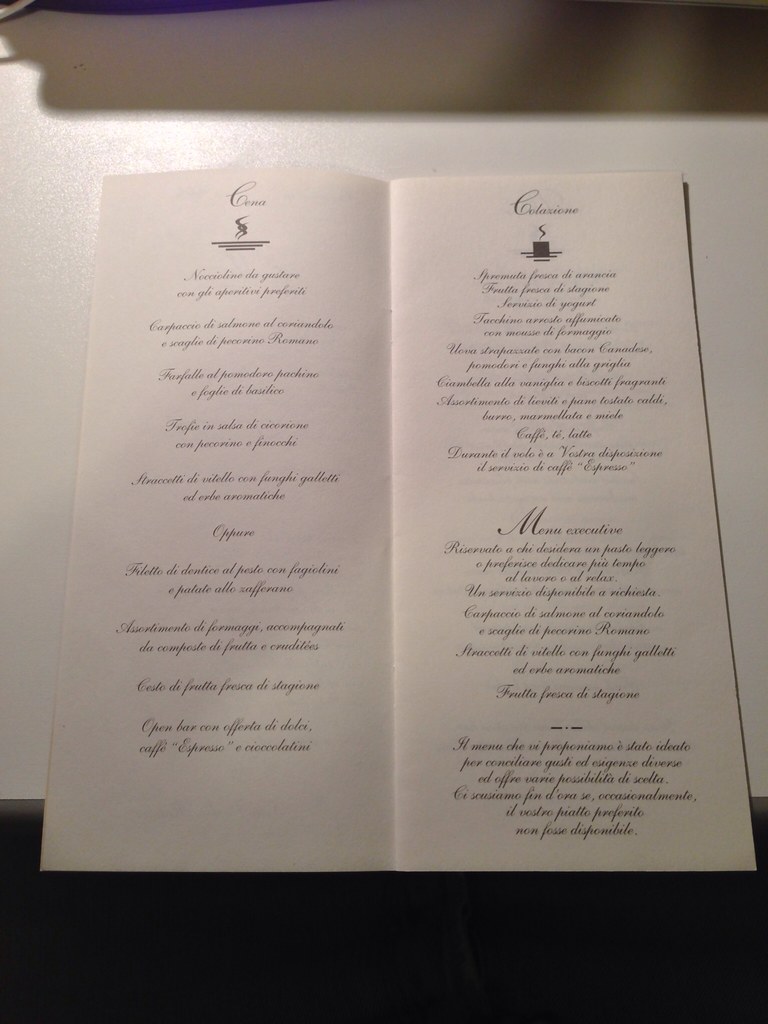 Cena
Noccioline da gustare
con gli aperitivi preferiti
Carpaccio di salmone al coriandolo
e scaglie di pecorino Romano
Farfalle al pomodoro pachino
e foglie di basilico
Trofie in salsa di cicorione
con pecorino e finocchi
Straccetti di vitello con funghi galletti
ed erbe aromatiche
Oppure
Filetto di dentice al pesto con fagiolini
e patate allo zafferano
Assortimento di formaggi, accompagnati
da composte di frutta e cruditées
Cesto di frutta fresca di stagione
Open bar con offerta di dolci,
caffè "Espresso" e cioccolatini
Colazione
Spremuta fresca di arancia
Frutta fresca di stagione
Servizio di yogurt
Tacchino arrosto affumicato
con mousse di formaggio
Uova strapazzate con bacon Canadese,
pomodori e funghi alla griglia
Ciambella alla vaniglia e biscotti fragranti
Assortimento di lieviti e pane tostato caldi,
burro, marmellata e miele
Caffè, tè, latte
Durante il volo è a Vostra disposizione
il servizio di caffè "Espresso"
Menu executive
Riservato a chi desidera un pasto leggero
o preferisce dedicare più tempo
al lavoro o al relax.
Un servizio disponibile a richiesta.
Carpaccio di salmone al coriandolo
e scaglie di pecorino Romano
Straccetti di vitello con funghi galletti
ed erbe aromatiche
Frutta fresca di stagione
Il menu che vi proponiamo è stato ideato
per conciliare gusti ed esigenze diverse
ed offre varie possibilità di scelta.
Ci scusiamo fin d'ora se, occasionalmente,
il vostro piatto preferito
non fosse disponibile.